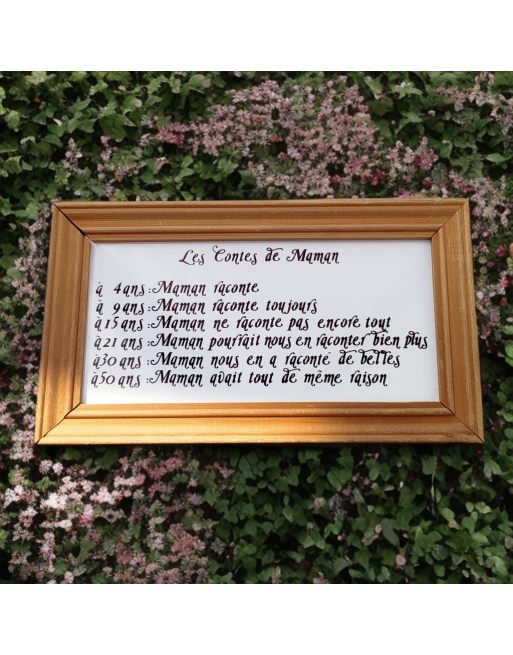 Les Contes de Maman
à 4 ans : Maman raconte
à 9 ans : Maman raconte toujours
à 15 ans : Maman ne raconte pas encore tout
à 21 ans : Maman pourrait nous en raconter bien plus
à 30 ans : Maman nous en a raconté de belles
à 50 ans : Maman avait tout de même raison